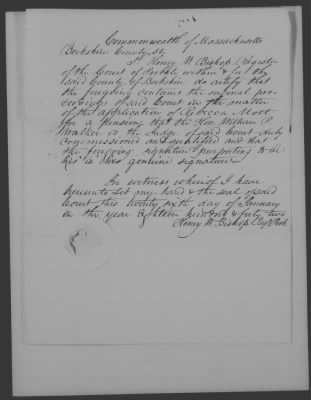 Commonwealth of Massachusetts
Berkshire County Ss
I, Henry W. Bishop, Register
of the Court of Probate within & for the
said County of Berkshire do certify that
the foregoing contains the original pro-
ceedings of said Court in the matter
of the application of Rebecca
for a Pension, that the Hon. William P.
Walker is the Judge of said Court duly
Commissioned and qualified and that
the foregoing signature purporting to be
his is his genuine signature.
In witness whereof I have
hereunto set my hand & the seal of said
Court this twenty sixth day of January
in the year Eighteen hundred & forty two
Henry W. Bishop Reg. Prob.